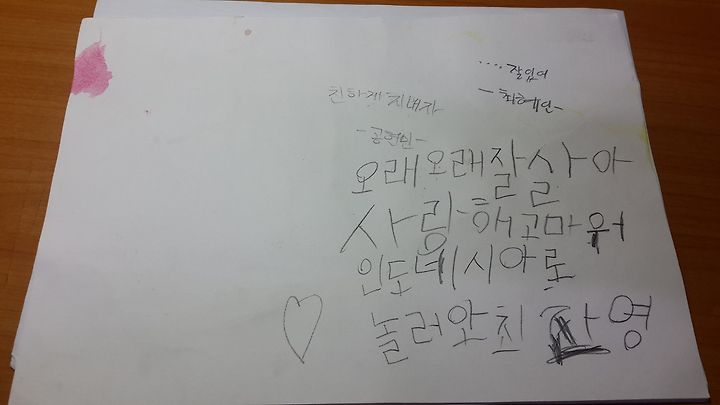 ....잘있어
-최혜인-
친하게 지내자
오래오래잘살아
사랑해고마워
인도네시아로
놀러와최 영